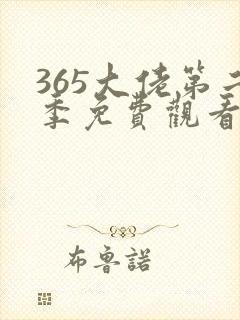 365大佬第二
季免費觀看
布魯諾